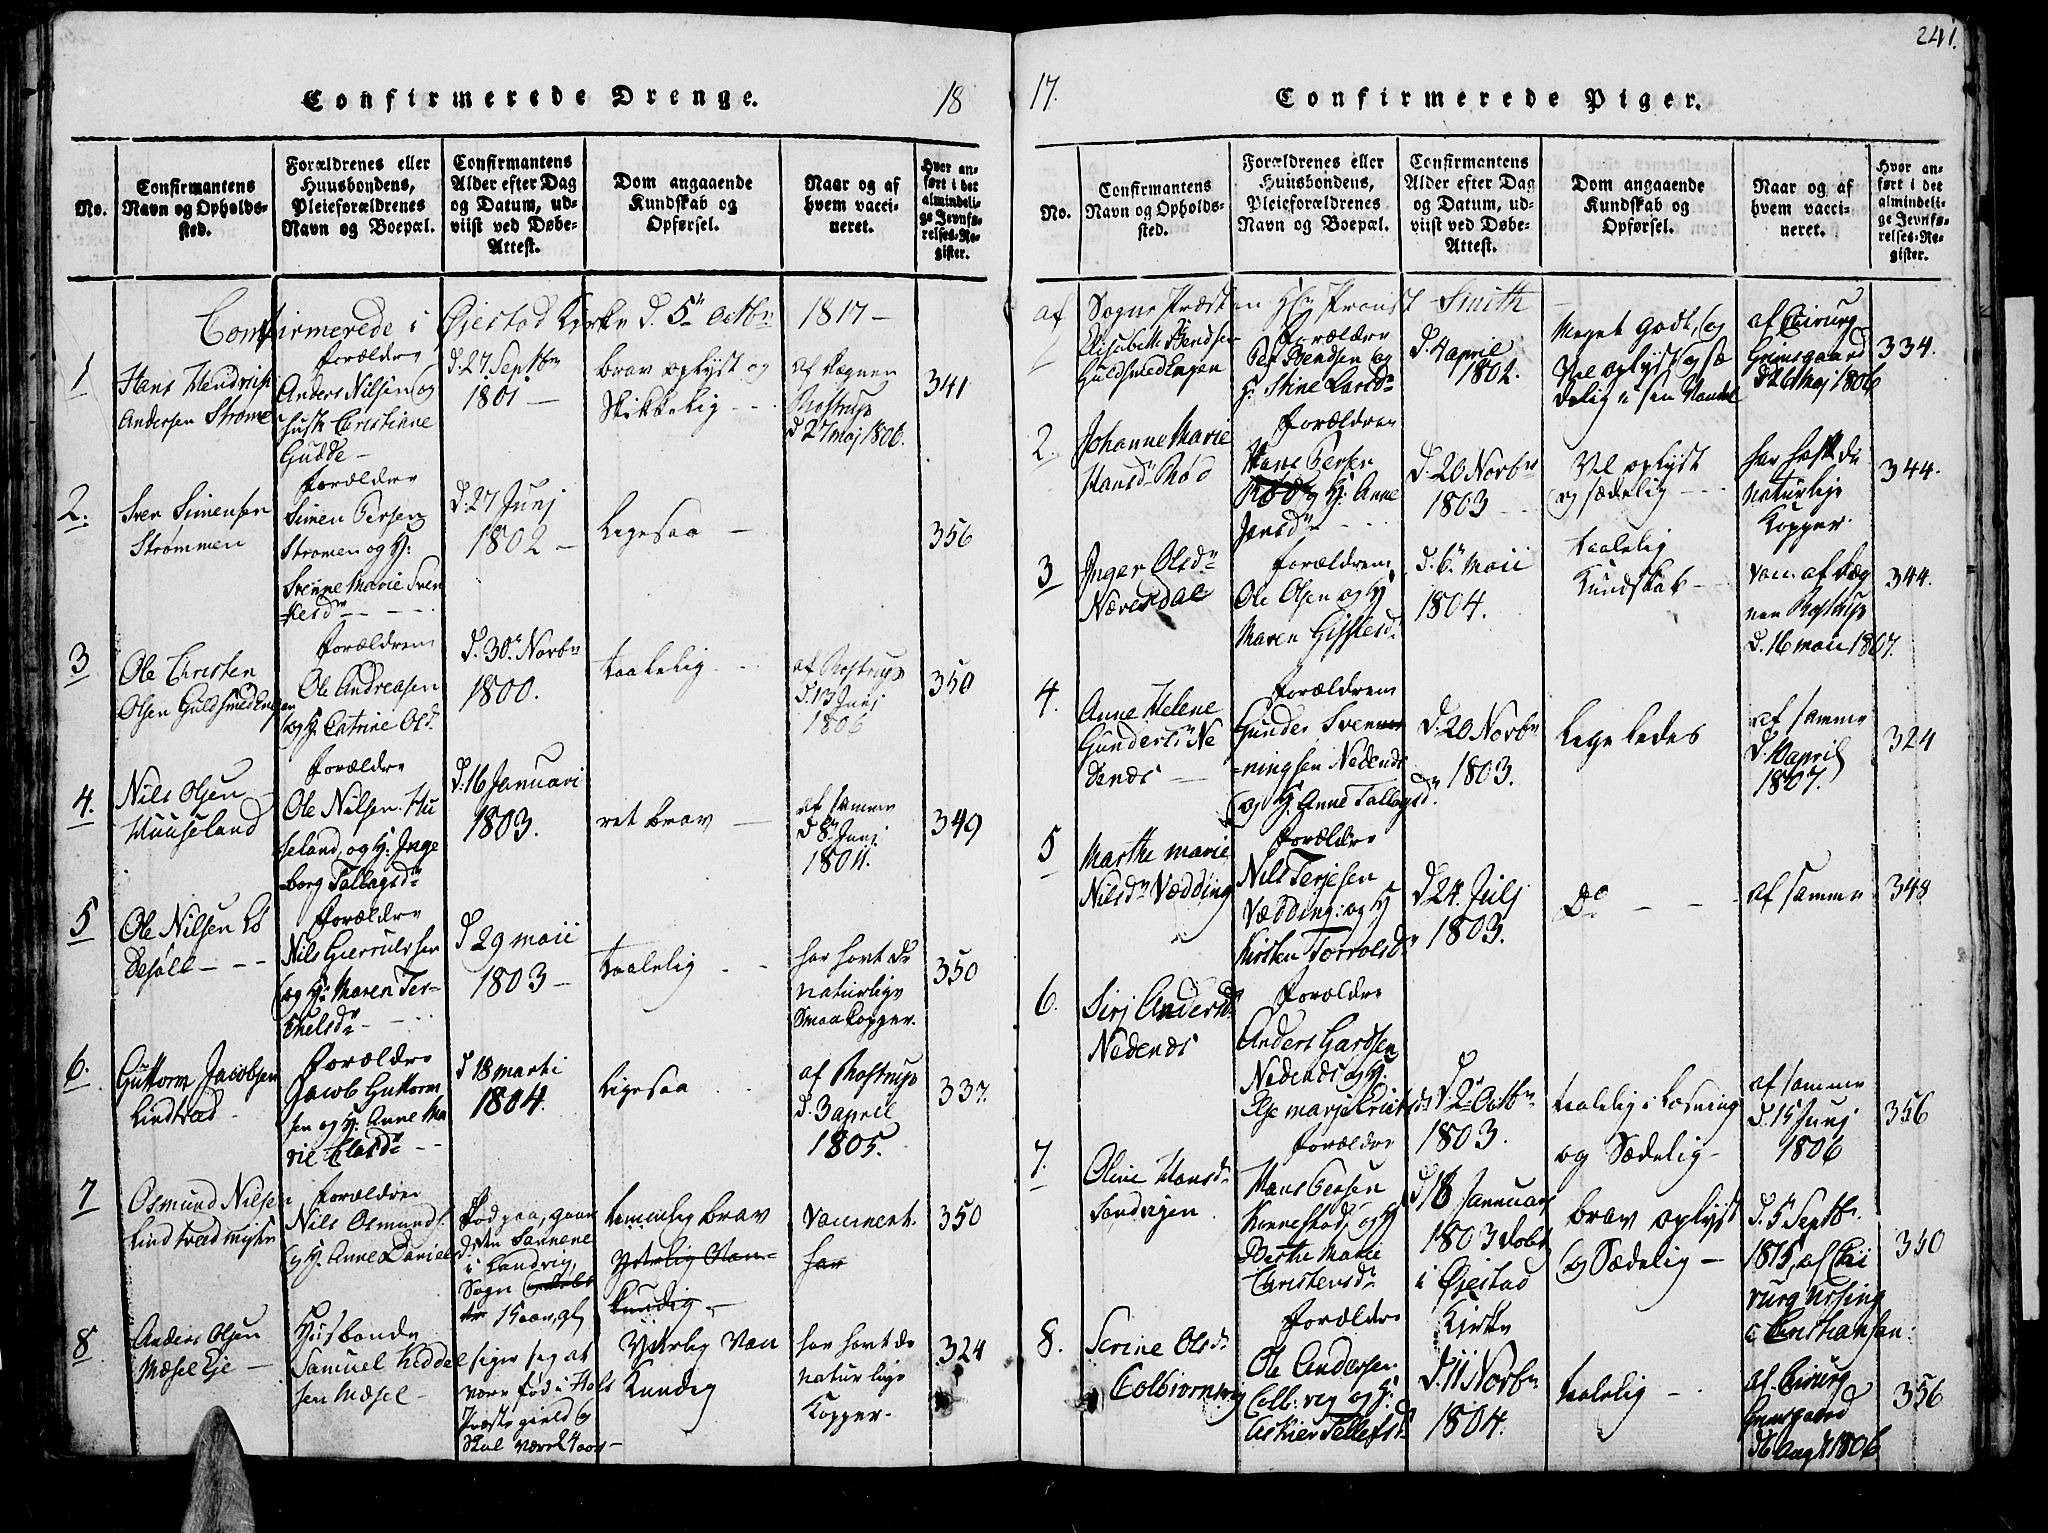 241.
Confirmerede Drenge.
18
No.
Confirmantens
Navn og Opholds-
sted.
Forældrenes eller
Huusbondens,
Pleieforældrenes
Navn og Boepæl.
Confirmantens
Alder efter Dag
og Datum, ud-
viist ved Døbe-
Attest.
Dom angaaende
Kundskab og
Opførsel.
Naar og af
hvem vacci-
neret.
Hvor an-
ført i det
almindeli-
ge Jevnfø-
relses-Re-
gister.
Confirmerede i Øiestad Kirke d. 5te Octbr 1817 —
1
Hans Hendrik
Andersen Strømme
Forældre
Anders Nilsen og
Hustr Christiane
Gudde —
d. 27 Septbr
1801 —
brav oplyst og
Skikkelig
af Degnen
Rostrup
d 27 Maj 1806.
341
2.
Sven Simensen
Strømmen
Forældre
Simen Persen
Strømen og H:
Svenne Marie Sven
Kesdr
d. 27 Junj
1802 —
Ligesaa —
356
3
Ole Christen
Olsen Guldsmedengen
Forældrene
Ole Andreasen
og H. Catrine Olsd.
d. 30. Novbr
1800.
taalelig
af Rostrup
d. 13 Junj
1806
350
4.
Nils Olsen
Huuseland
Forældre
Ole Nilsen Hu
seland, og H: Inge
borg Tallagsdr
d. 16 Januari
1803.
ret brav —
af samme
d 8 Junj
1804.
349
5
Ole Nilsen Lø
desøll
Forældre
Nils Gierrulvsen
og H: Maren Ter-
kelsdr
d 29 Maii
1803 —
taalelig
har havt de
naturlige
Smaakopper.
350
6.
Guttorm Jacobsen
Lindtvæd
Forældre
Jacob Guttorm
sen og H: Anne Ma
rie Elasdr
d 18 Marti
1804.
Ligesaa
af Rostrup
d. 3 april
1805.
337
7
Osmund Nilsen
Lindtvedmyhr
Forældre
Nils Osmunds.
og H. Anne Daniels
Fød paa gaar
den Sannene
i Landvig
Sogn
15 aar gl
temmelig brav
Yderlig Van-
kundig —
Vaccinert.
har
350
8
Anders Olsen
Mæsel Eje —
Husbonde
Samuel Kiddel
sen Mæsel —
siger seg at
være fød i Hols
Præstegield og
skal være 24 aar —
Yderlig Van
Kundig
har havt de
naturlige
Kopper.
324
17.
Confirmerede Piger.
No.
Confirmantens
Navn og Opholds-
sted.
Forældrenes eller
Huusbondens,
Pleieforældrenes
Navn og Boepæl.
Confirmantens
Alder efter Dag
og Datum, ud-
viist ved Døbe-
Attest.
Dom angaaende
Kundskab og
Opførsel.
Naar og af
hvem vacci-
neret.
Hvor an-
ført i det
almindeli-
ge Jevnfø-
relses-Re-
gister.
af Sogne Præsten Hr Provst Smith
Elisabeth Bendsen
Guldsmedengen
Forældre
Per Bendsen og
H. Stine Larsdr
d. 4 aprile
1802.
Meget Godt, og
Vel oplyst og sæ
delig i sen Handel
af Chirurg
Grimsgaard
d 26 Maj 1806
334.
2.
Johanne Marie
Hansdr Rød
Forældren
Hans Persen
Rød og H. Anne
Jensdr
d. 20 Novbr
1803
Vel oplyst
og sædelig
har haft de
naturlige
Kopper.
344.
3
Inger Olsdr
Næversdal
Forældren
Ole Olsen og H
Maren Gislesdr
d. 6. Maii
1804.
taalelig
Kundskab
Vac. af Deg
nen Rostrup
d. 16 Maii 1807.
344.
4.
Anne Helene
Gundersdr Ne
denæs
Forældrene
Gunder Sven
ningsen Nedenæs
og H. Anne Tallagsdr.
d. 20 Novbr
1803.
Lige ledes
af samme
April
1807.
324
5
Marthe Marie
Nilsdr Vædding
Forældre
Nils Terjesen
Vædding: og H
Kirsten Torvolsdr
d. 24. Julj
1803.
Do — —
af samme
348
6.
Sirj Andersdr
Nedenæs
Forældre
Anders Gardsen
Nedenæs og H.
Else Marje Erichsdr
d. 2 Octbr
1803.
taalelig i Læsning
og Sædelig
af samme
d. 15 Junj
1806
356
7.
Oline Hansdr
Sandvigen
Forældre
Hans Persen
Kinnestad, og H
Berthe Marie
Christensdr
d 18 Januar
1803 døbt
i Øiestad
Kirke
brav oplyst
og Sædelig —
d. 5 Septbr.
1815, af Chi
rurg
i Christiansan:
350
8.
Serine Olsdr
Colbiørnsvig
Forældre
Ole Andersen
Colb:vig og H:
Askier Tellefsdr
d. 11 Novbr
1804.
taalelig
af Chirurg
Grimsgaard
d 6 Aug 1806
356